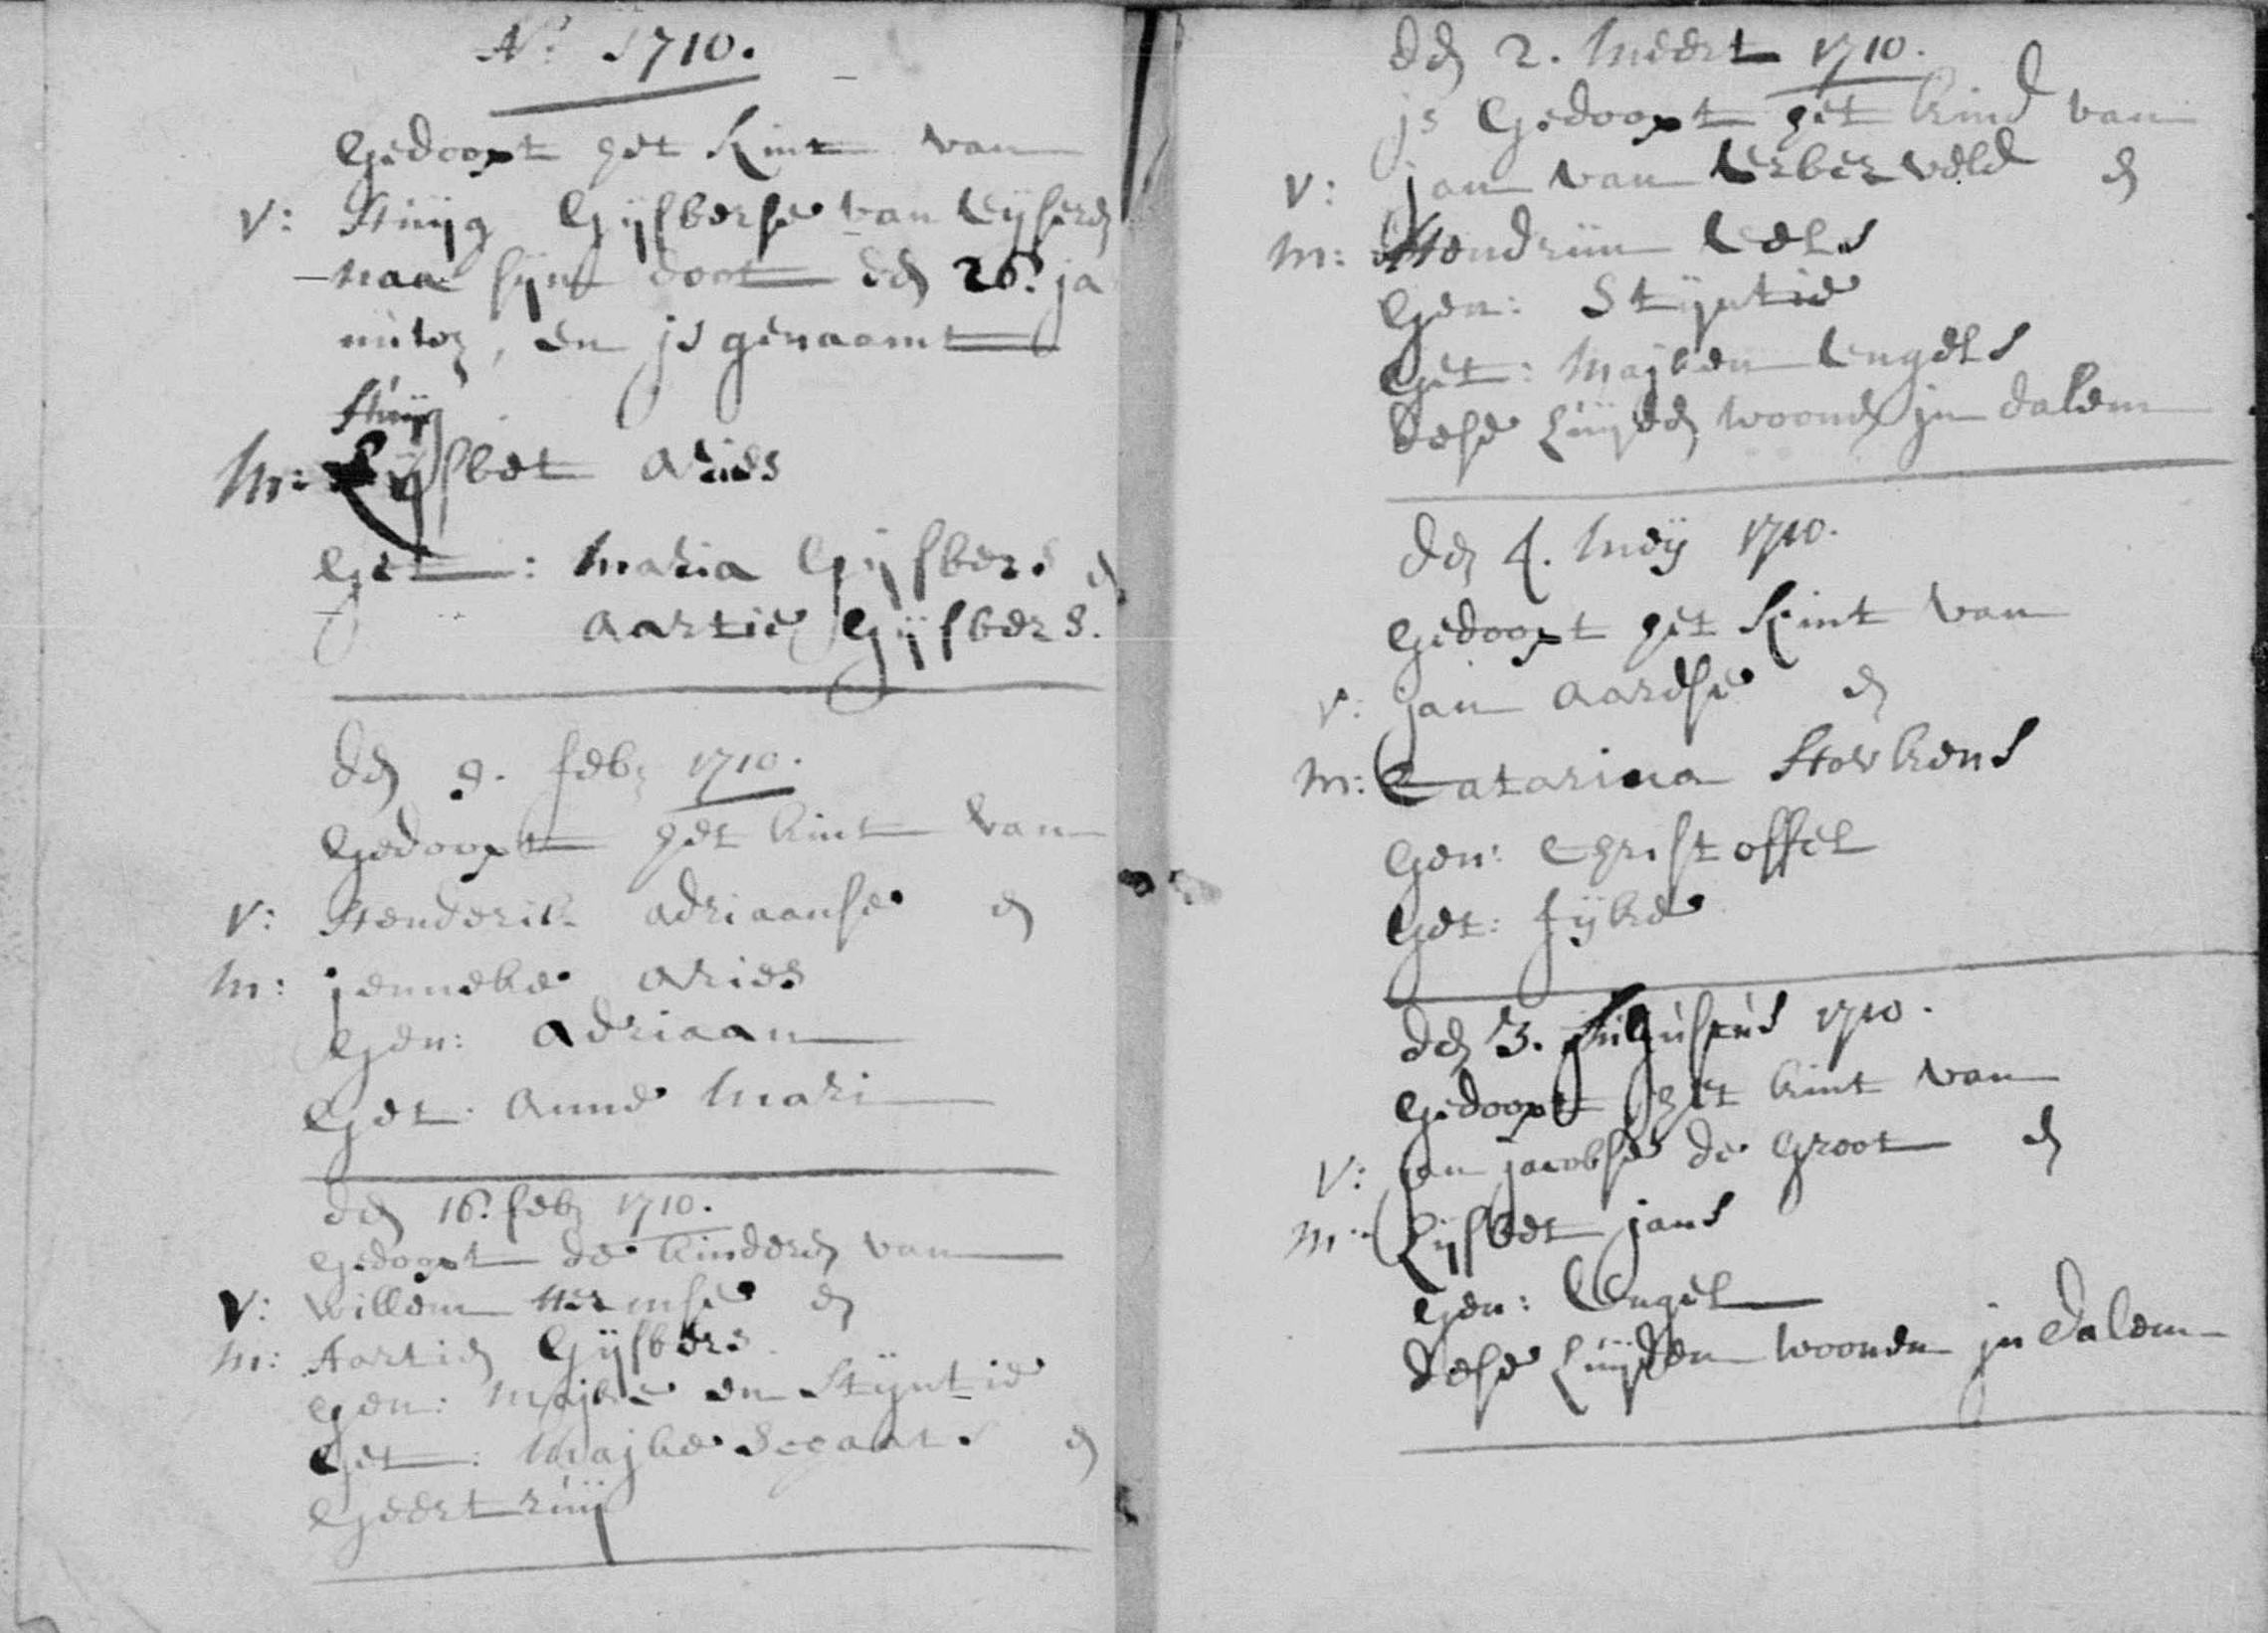 Ao 1710.
Gedoopt het Kint van
V: Huijg Gijsberse van Leijsen
naar sijn doot den 26. ja
nuwr, en is genaamt
Huijg
M: Lijsbet Aries
Get: Maria Gijsbers en
Aartie Gijsbers.
den 9. feb: 1710.
Gedoopt het kint van
V: Henderik Adriaanse en
M: jenneke Aries
Gen: Adriaan
Get: Anne Mari
den 16. feb: 1710.
Gedoopt de kinderen van
V: Willem Hermse en
M: Aartie Gijsbers
Gen: Majke en Stijntie
Get: Majke en
Geertruij
den 2. Meert 1710.
is Gedoopt het kind van
V: jan van en
M: Hendrijn
Gen: Stijntie
Get: Majken Engels
dese Luijden woonen in dalem
den 4. Meij 1710.
Gedoopt het Kint van
V: jan Aardse en
M: Catarina
Gen: Christoffel
Get: fijke
den 3. Augustus 1710.
Gedoopt het kint van
V: jan jacobse de Groot en
M: Lijsbet jans
Gen: Engel
dese Luijden woonen in Dalem